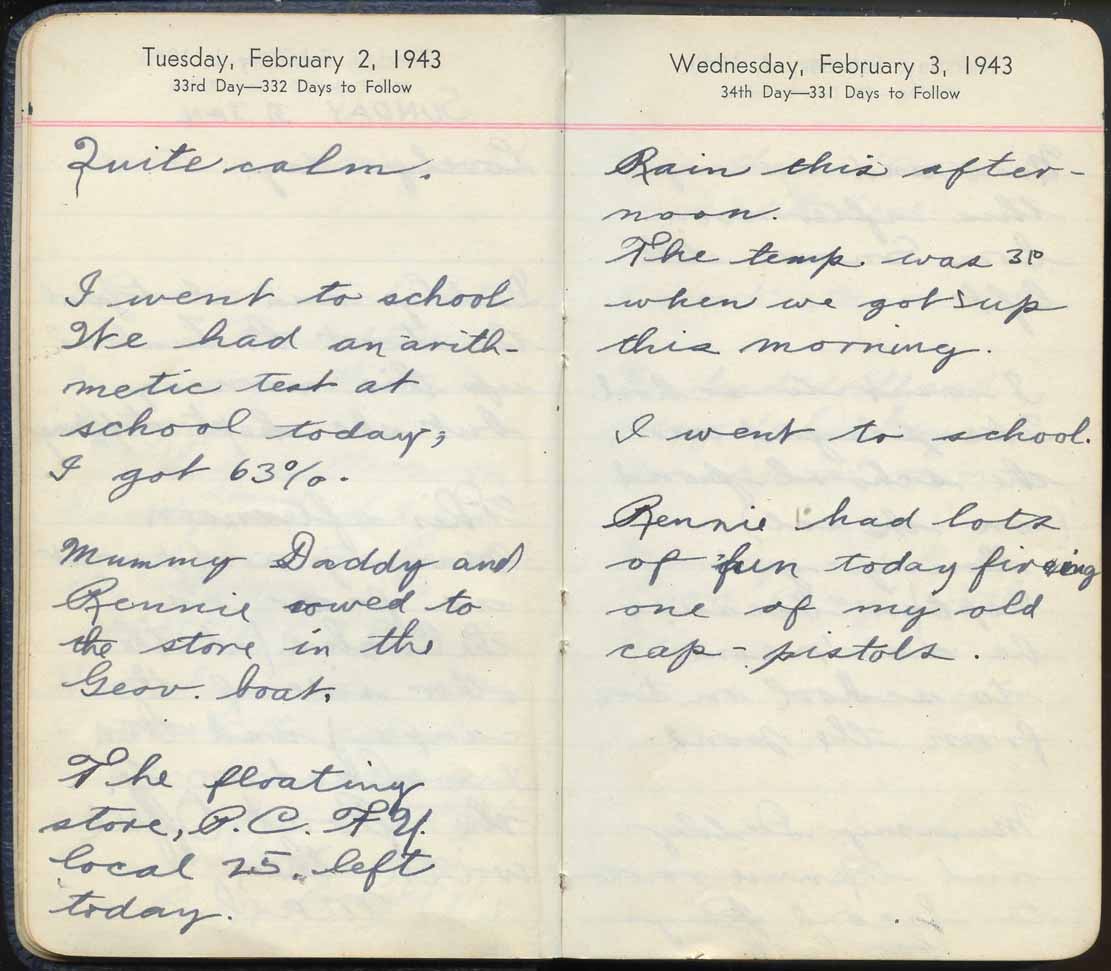 Tuesday, February 2, 1943
33rd Day—332 Days to Follow
Quite calm.
I went to school
We had an arith-
metic test at
school today,
I got 63%.
Mummy Daddy and
Rennie rowed to
the store in the
Gov. boat.
The floating
store, P.C.
local 25. left
today.
Wednesday, February 3, 1943
34th Day—331 Days to Follow
Rain this after-
noon.
The temp. was
when we got up
this morning.
I went to school.
Rennie had lots
of fun today
one of my old
cap-pistols.